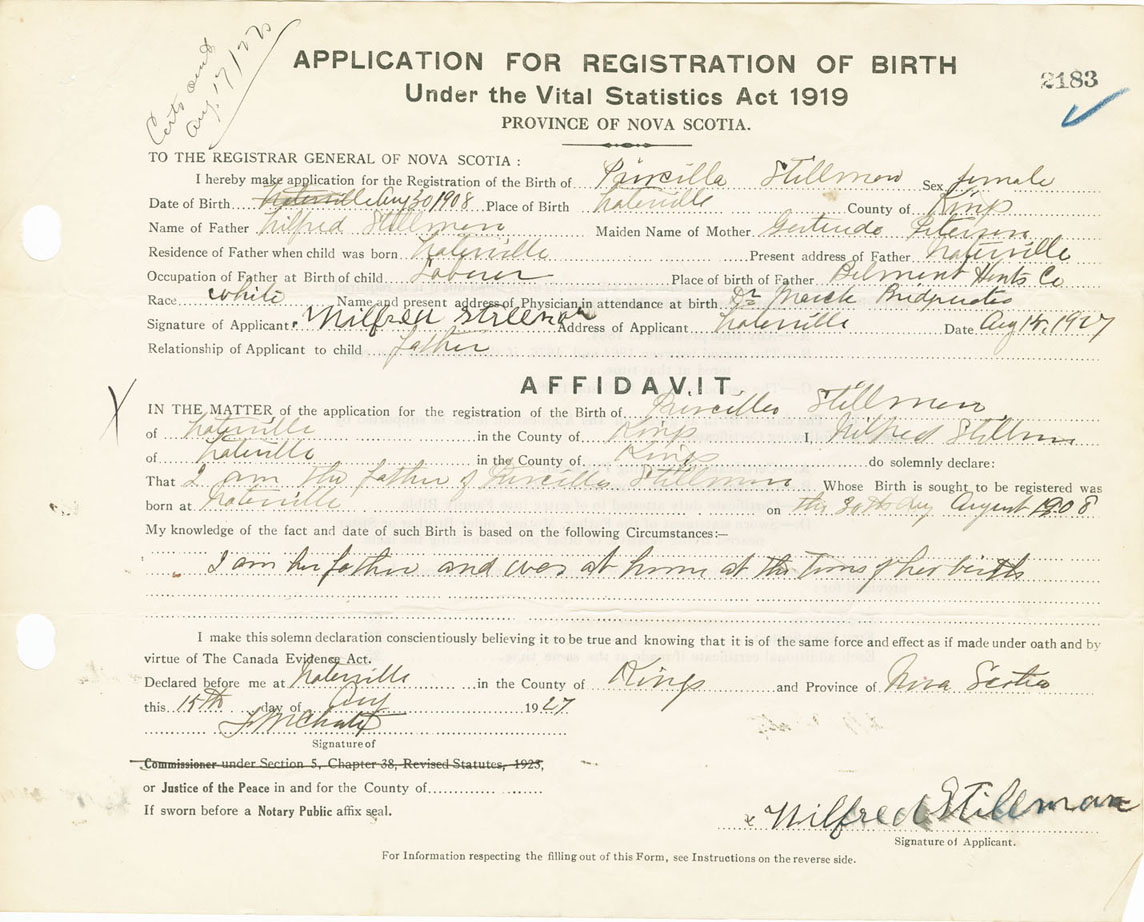 Certs sent
Aug. 17/27
APPLICATION FOR REGISTRATION OF BIRTH
2183
Under the Vital Statistics Act 1919
PROVINCE OF NOVA SCOTIA.
TO THE REGISTRAR GENERAL OF NOVA SCOTIA :
I hereby make application for the Registration of the Birth of Priscilla Stillman Sex female
Date of Birth Aug 30 1908 Place of Birth Waterville County of Kings
Name of Father Wilfred Stillman Maiden Name of Mother Gertrude Peterson
Residence of Father when child was born Waterville Present address of Father Waterville
Occupation of Father at Birth of child Laborer Place of birth of Father Belmont Hants Co
Race white Name and present address of Physician in attendance at birth Dr
Signature of Applicant Wilfred Stillman Address of Applicant Waterville Date Aug 15, 1927
Relationship of Applicant to child father
AFFIDAVIT.
IN THE MATTER of the application for the registration of the Birth of Priscilla Stillman
of Waterville in the County of Kings I, Wilfred Stillman
of Waterville in the County of Kings do solemnly declare:
That I am the father of Priscilla Stillman Whose Birth is sought to be registered was
born at Waterville on the 30th day August 1908
My knowledge of the fact and date of such Birth is based on the following Circumstances:—
I am her father and was at home at the time of her birth
I make this solemn declaration conscientiously believing it to be true and knowing that it is of the same force and effect as if made under oath and by
virtue of The Canada Evidence Act.
Declared before me at Waterville in the County of Kings and Province of Nova Scotia
this 15th day of Aug 1927
Signature of
Commissioner under Section 5, Chapter 38, Revised Statutes, 1923,
or Justice of the Peace in and for the County of
If sworn before a Notary Public affix seal.
x Wilfred Stillman
Signature of Applicant.
For Information respecting the filling out of this Form, see Instructions on the reverse side.